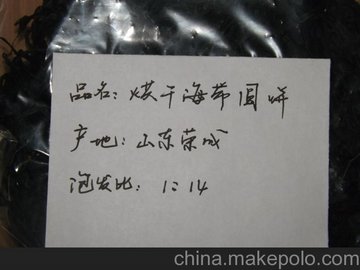 品名：烘干海带圆饼
产地：山东荣成
泡发比：1：14
china.makepolo.com